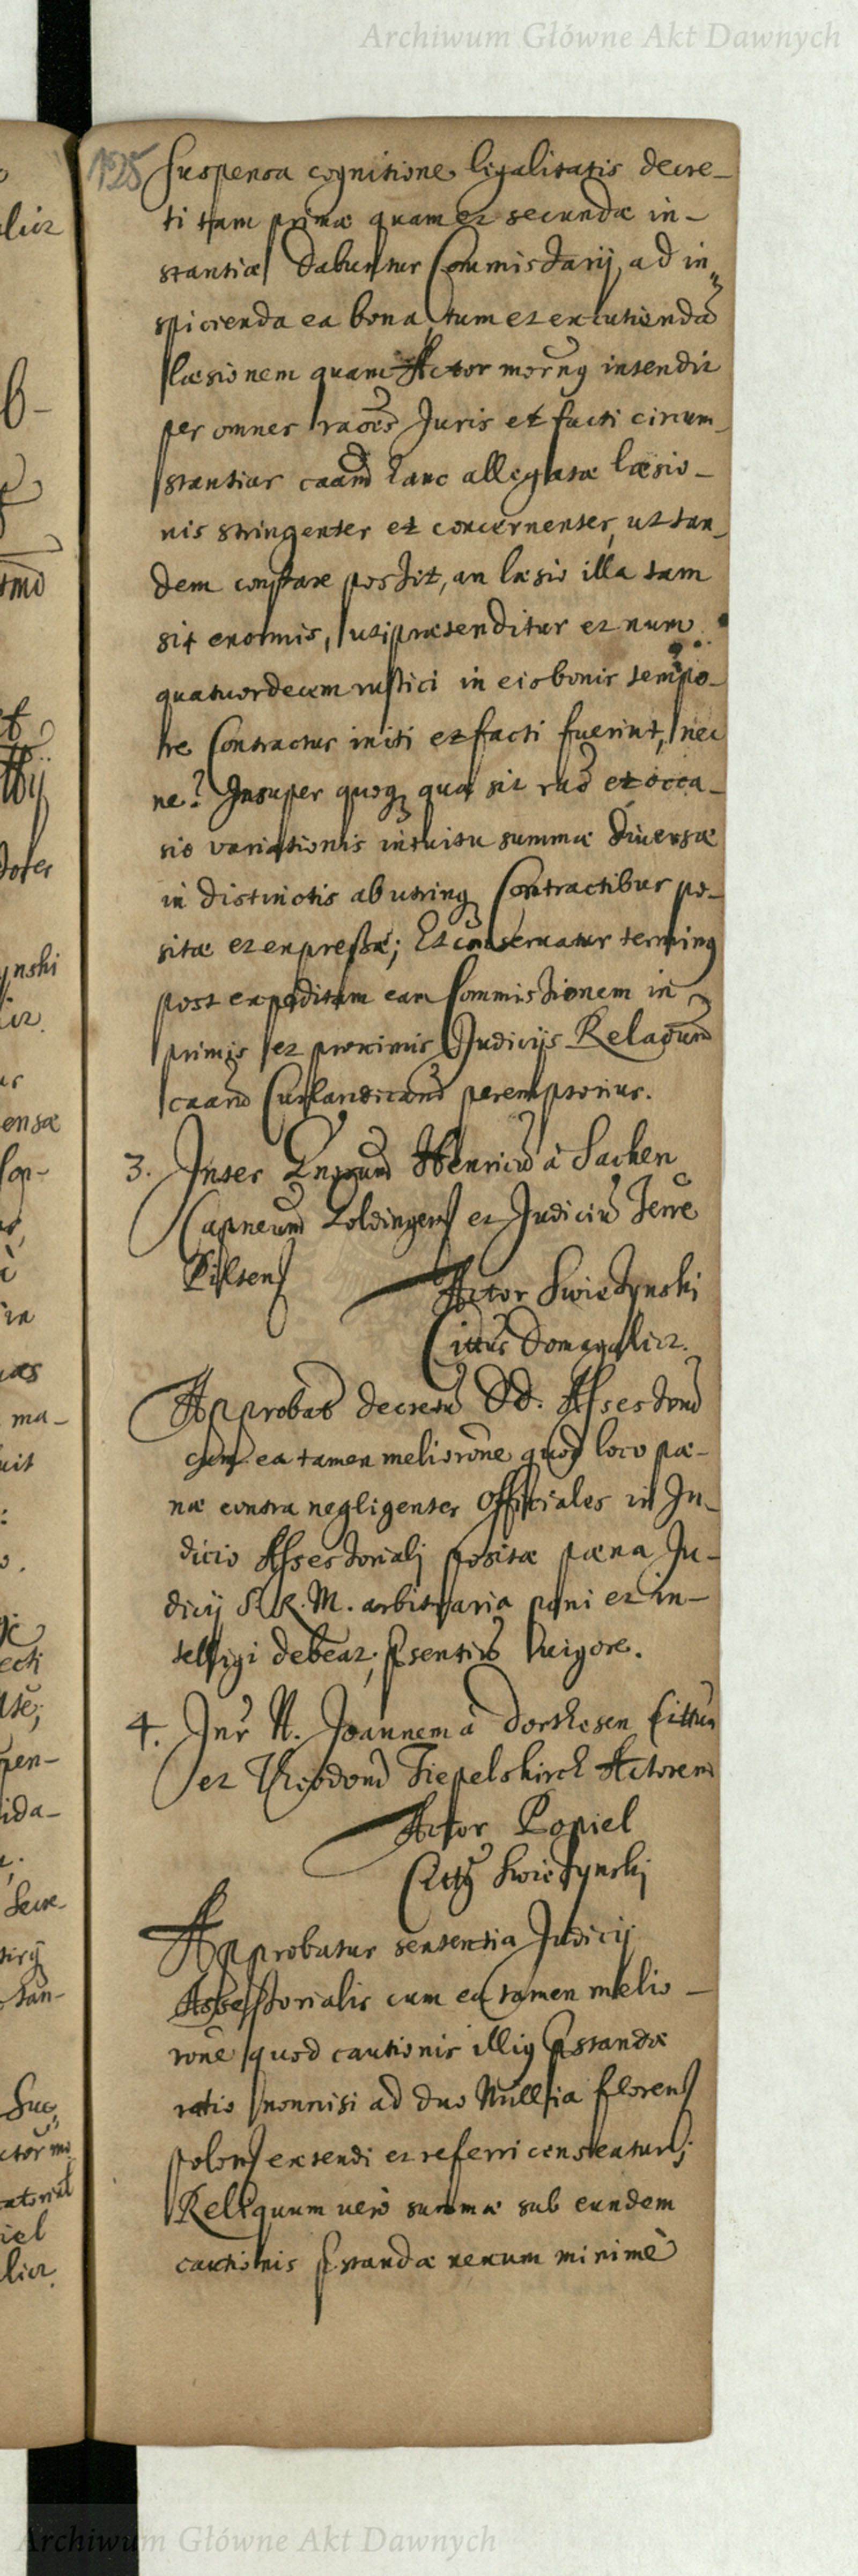 Archiwum Główne Akt Dawnych
125
Suspensa cognitione legalitatis decre-
ti tam primæ quam et secundæ in-
stantiæ dabuntur Commissarij, ad in-
spicienda ea bona, tum et excutiendã
læsionem quam Actor mornꝰ intendit
per omnes raões Juris et facti circum-
stantias caam hanc allegatæ læsio-
nis stringentes et concernentes, ut tan-
dem constare possit, an læsio illa tam
sit enormis, uti prætenditur et num
quatuordecem rustici in eis bonis tempo-
re Contractus initi et facti fuerint, nec
ne? Insuper quoqꝫ quæ sit raõ et occa-
sio variationis intuitu summæ diversæ
in distinctis ab utrinqꝫ Contractibus po-
sitæ et expressæ; Et conservatur terminꝰ
post expeditam eam Commissionem in
primis et proximis Judicijs Relaõum
caarũ Curlandicarũ peremptorius.
3. Inter Gnosum Henricũ à Sacken
Capneum Goldingens et Judiciũ Terre
Piltens
Actor Swieżynski
Cittus Domagalicz.
Approbat decretũ Dd. Assessorũ
cum ea tamen meliorõne quod loco pæ-
næ contra negligentes Officiales in Ju-
dicio Assessoriali positæ pæna Ju-
dicij S. R. M. arbitraria poni et in-
telligi debeat, pẽsentis vigore.
4. Intr N. Joannem à Dorthesen Cittum
et Theodorũ Tiepelskirch Actorem
Actor Popiel
Cittꝰ Swieżynskj
Approbatur sententia Judicij
Assessorialis cum ea tamen melio-
rõne quod cautionis illiꝰ pẽstandæ
ratio nonnisi ad duo Millia florens
polons extendi et referri censeatur;
Reliquum verò summæ sub eundem
cautionis pẽstandæ nexum minimè
Archiwum Główne Akt Dawnych